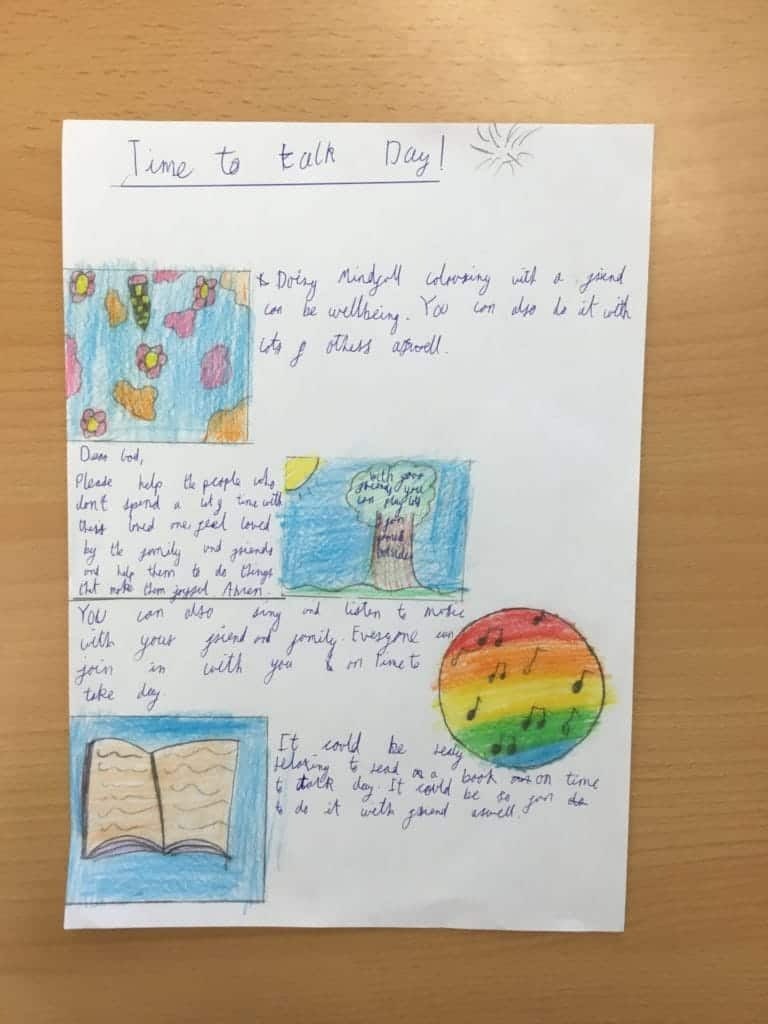 Time to talk Day!
Doing Mindfull colouring with a friend
can be wellbeing. You can also do it with
lots of others aswell.
Dear God,
Please help the people who
don't spend a lot of time with
there loved one feel loved
by the family and friends
and help them to do things
that make them joyful Amen.
with your
friends you
can play lots
for
your
outside
You can also sing and listen to music
with your friend and family. Everyone can
join in with you on Time to
take day.
It could be realy
relaxing to read a book on time
to talk day. It could be so fun
to do it with friend aswell.